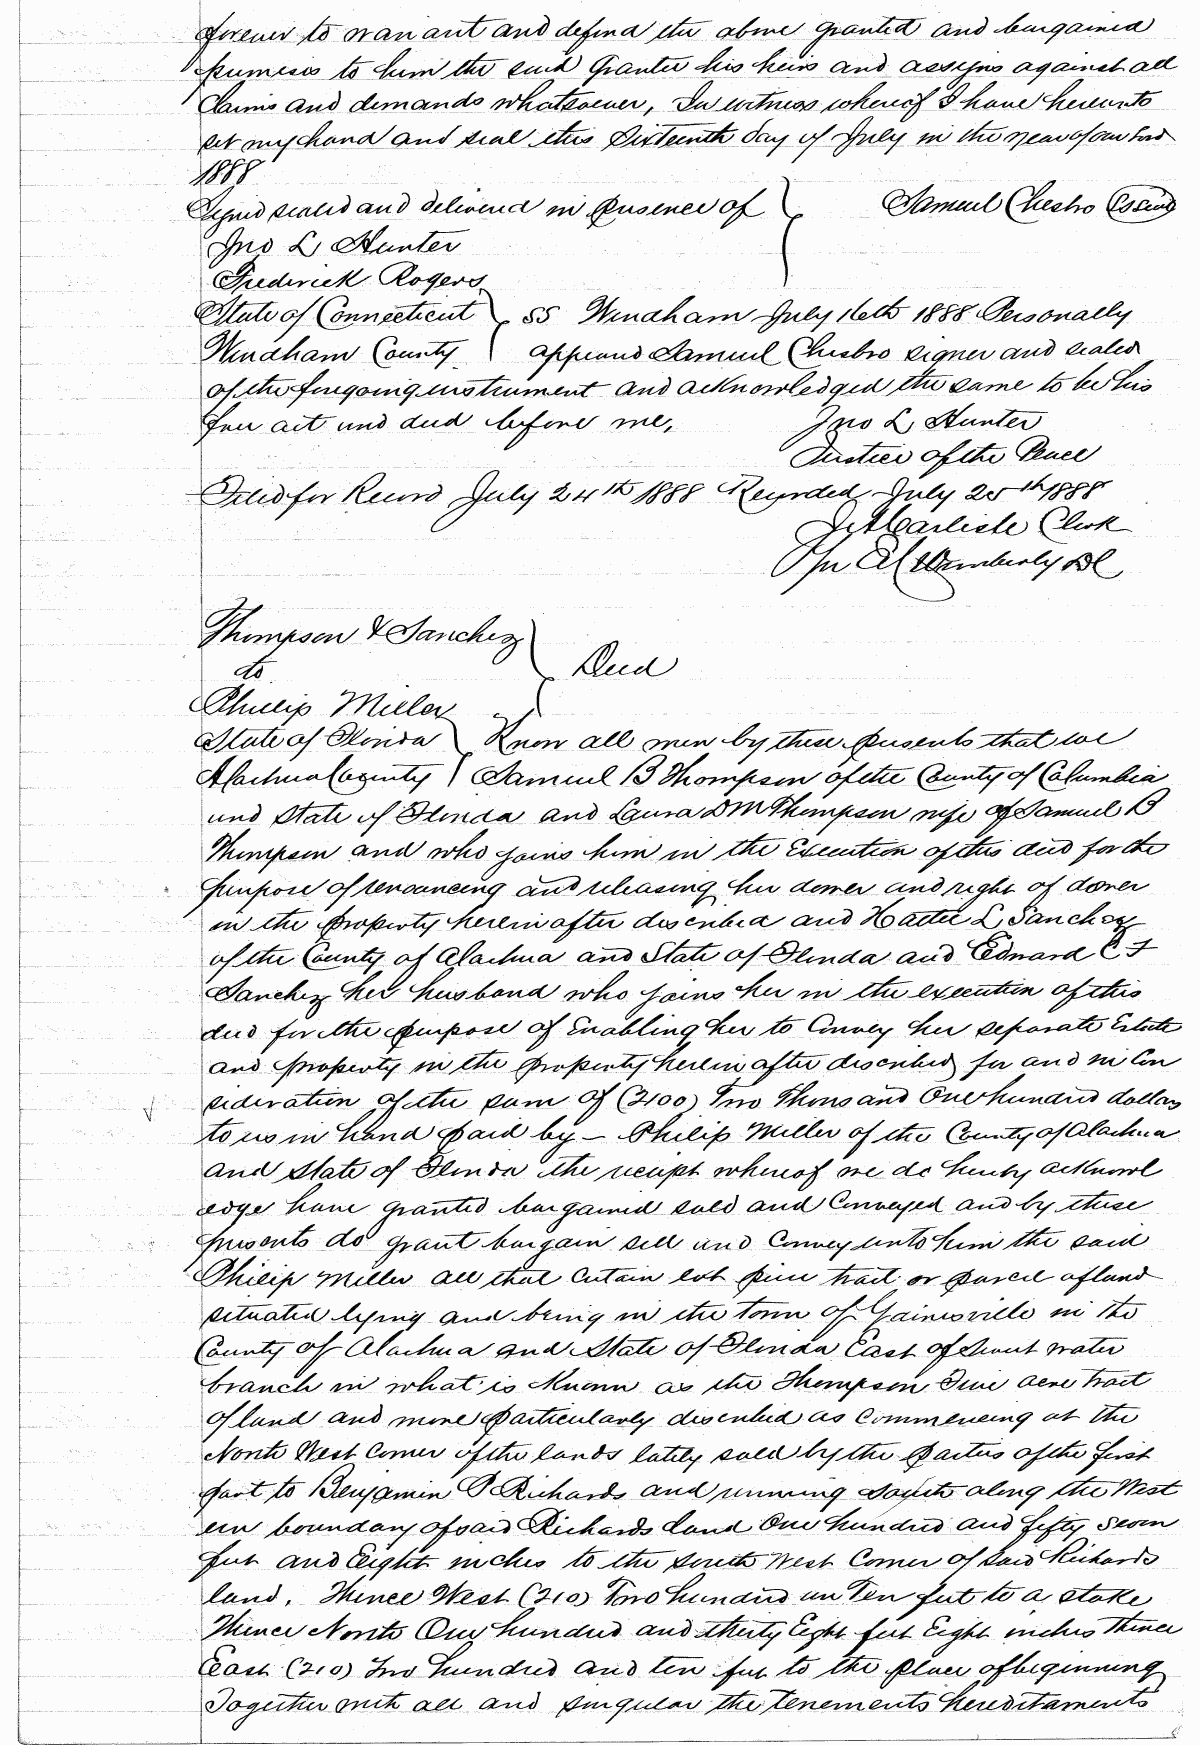 forever to warrant and defend the above granted and bargained
premises to him the said Grantee his heirs and assigns against all
Claims and demands whatsoever, In witness whereof I have hereunto
set my hand and seal this Sixteenth day of July in the year of our Lord
1888
Signed sealed and delivered in presence of Samuel Chesbro (Seal)
Jno L Hunter
Frederick Rogers
State of Connecticut SS Windham July 16th 1888 Personally
Windham County appeared Samuel Chesbro signer and sealed
of the foregoing instrument and acknowledged the same to be his
free act and deed before me, Jno L Hunter
Justice of the Peace
Filed for Record July 24th 1888 Recorded July 25th 1888
J A Carlisle Clerk
Per Wimberly DC
Thompson & Sanchez
to Deed
Phillip Miller
State of Florida Know all men by these presents that we
Alachua County Samuel B Thompson of the County of Columbia
and State of Florida and Laura D M Thompson wife of Samuel B
Thompson and who joins him in the Execution of this deed for the
purpose of renouncing and releasing her dower and right of dower
in the property herein after described and Hattie L Sanchez
of the County of Alachua and State of Florida and Edward C F
Sanchez her husband who joins her in the execution of this
deed for the purpose of Enabling her to Convey her separate Estate
and property in the property herein after described for and in Con
sideration of the sum of (2100) Two Thousand One hundred dollars
to us in hand paid by - Philip Miller of the County of Alachua
and State of Florida the receipt whereof we do hereby acknowl
edge have granted bargained sold and Conveyed and by these
presents do grant bargain sell and Convey unto him the said
Philip Miller all that certain lot piece tract or parcel of land
situated lying and being in the town of Gainesville in the
County of Alachua and State of Florida East of Sweet water
branch in what is Known as the Thompson Five acre tract
of land and more particularly described as Commencing at the
North West Corner of the lands lately sold by the parties of the first
part to Benjamin P Richards and running South along the West
ern boundary of said Richards land One hundred and fifty seven
feet and Eight inches to the South West Corner of said Richards
land, Thence West (210) Two hundred an Ten feet to a stake
Thence North One hundred and thirty Eight feet Eight inches Thence
East (210) Two hundred and ten feet to the place of beginning
Together with all and singular the tenements hereditaments